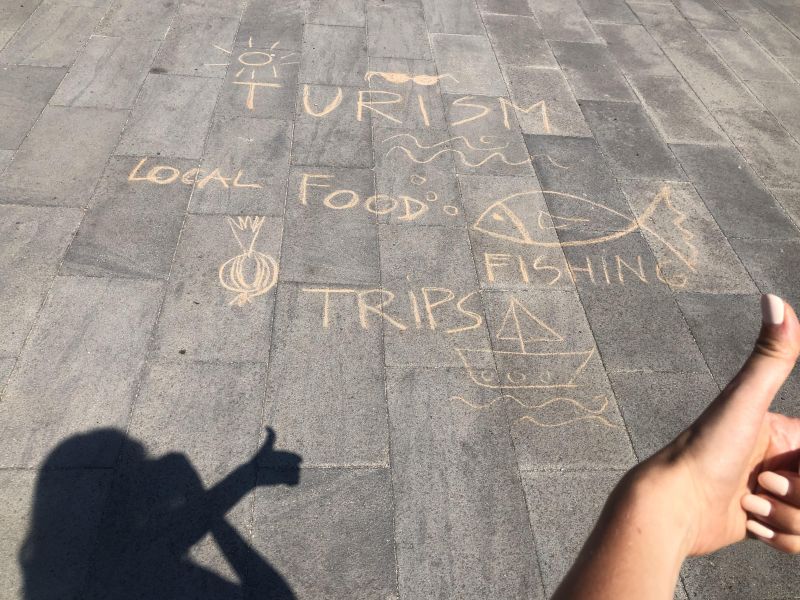 TURISM
LOCAL FOOD
FISHING
TRIPS